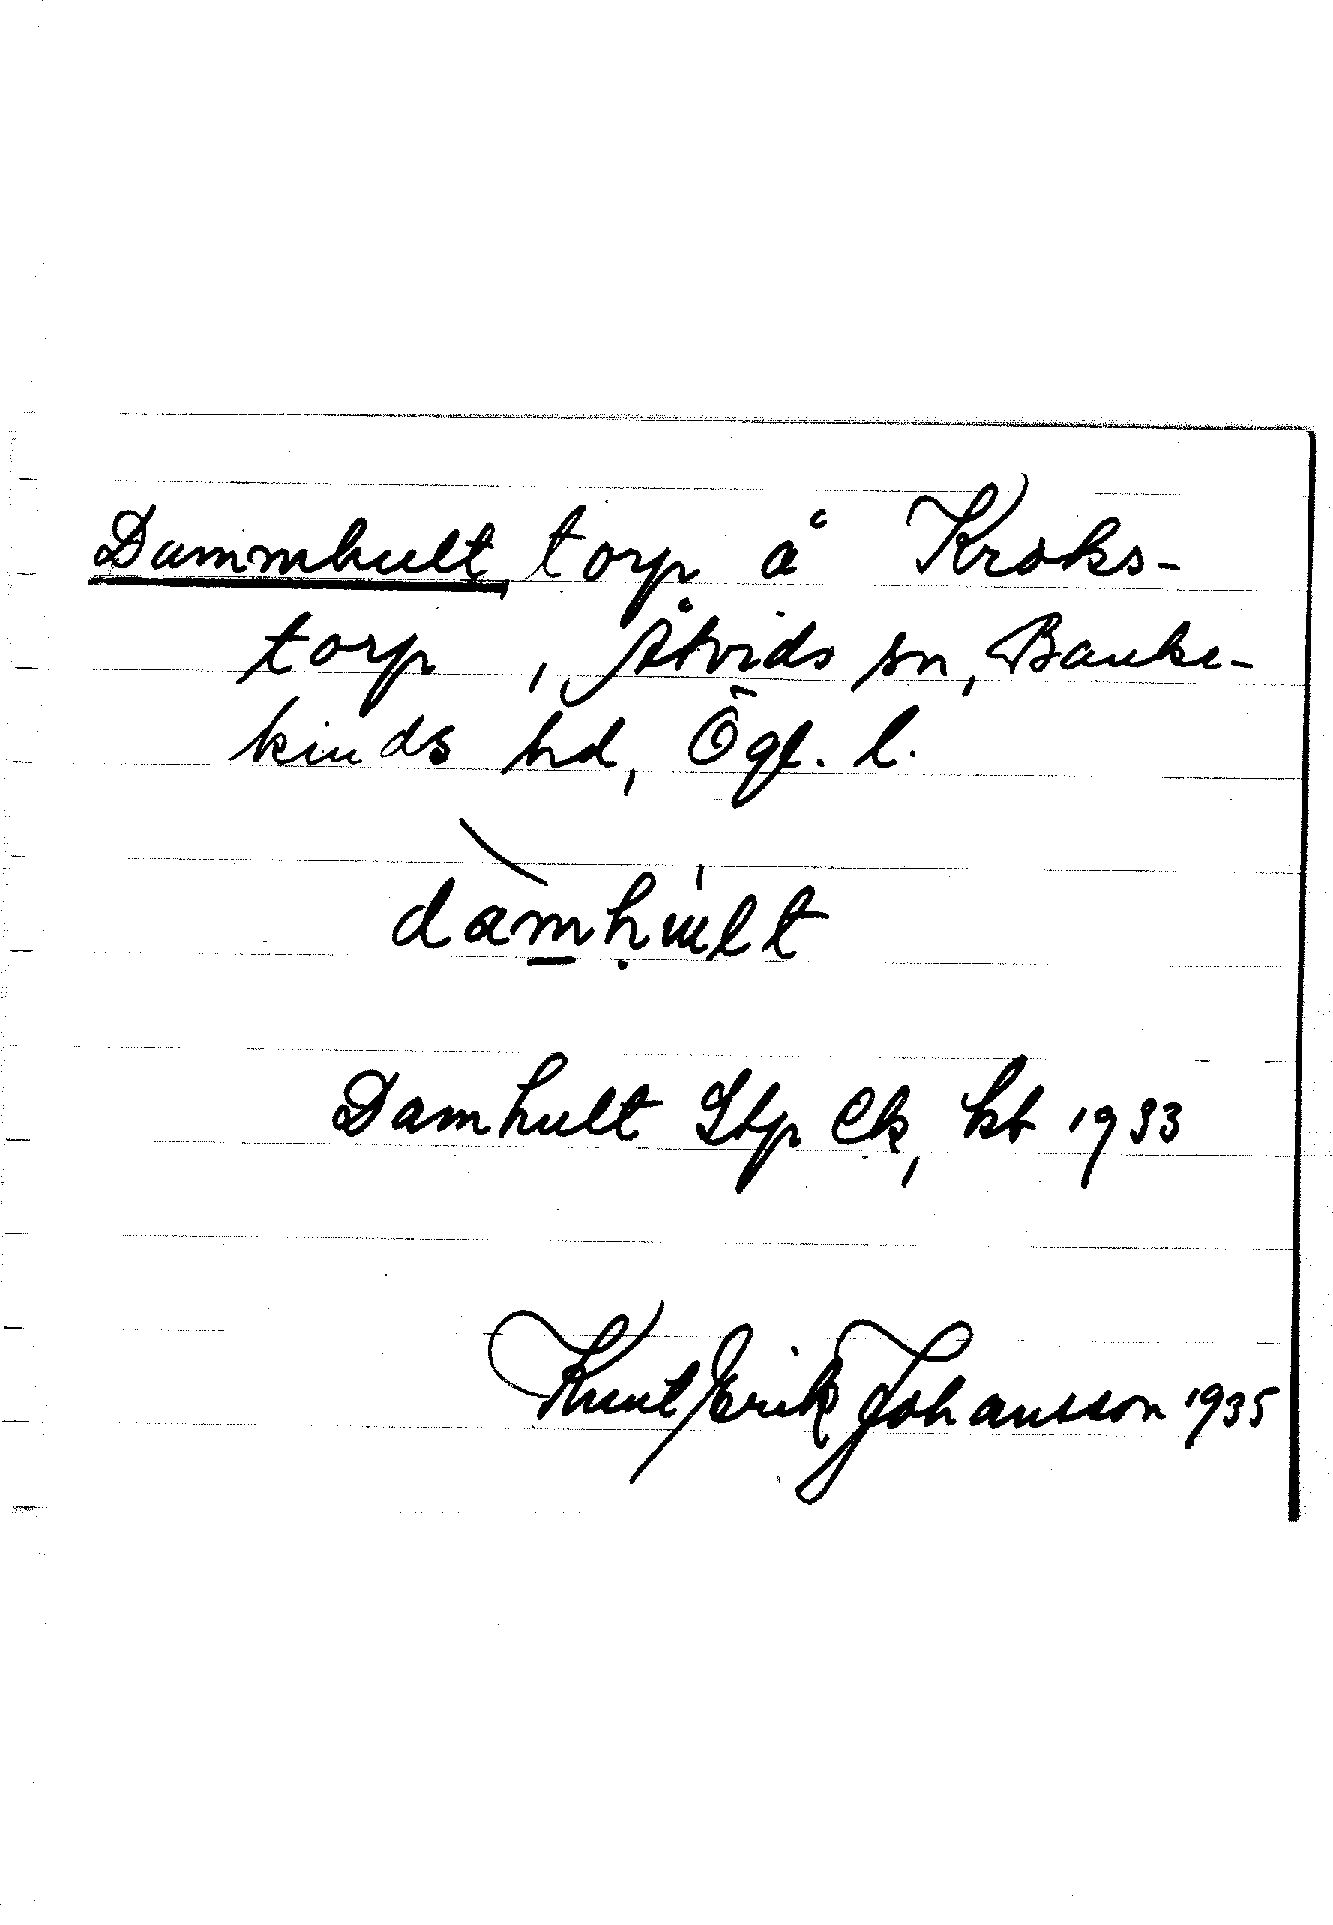 Dammhult torp å Kroks-
torp, Åtvids sn, Banke-
kinds hd, Ögl. l.
damhult
Damhult Stp Ek, kb 1933
Knut Erik Johansson 1935